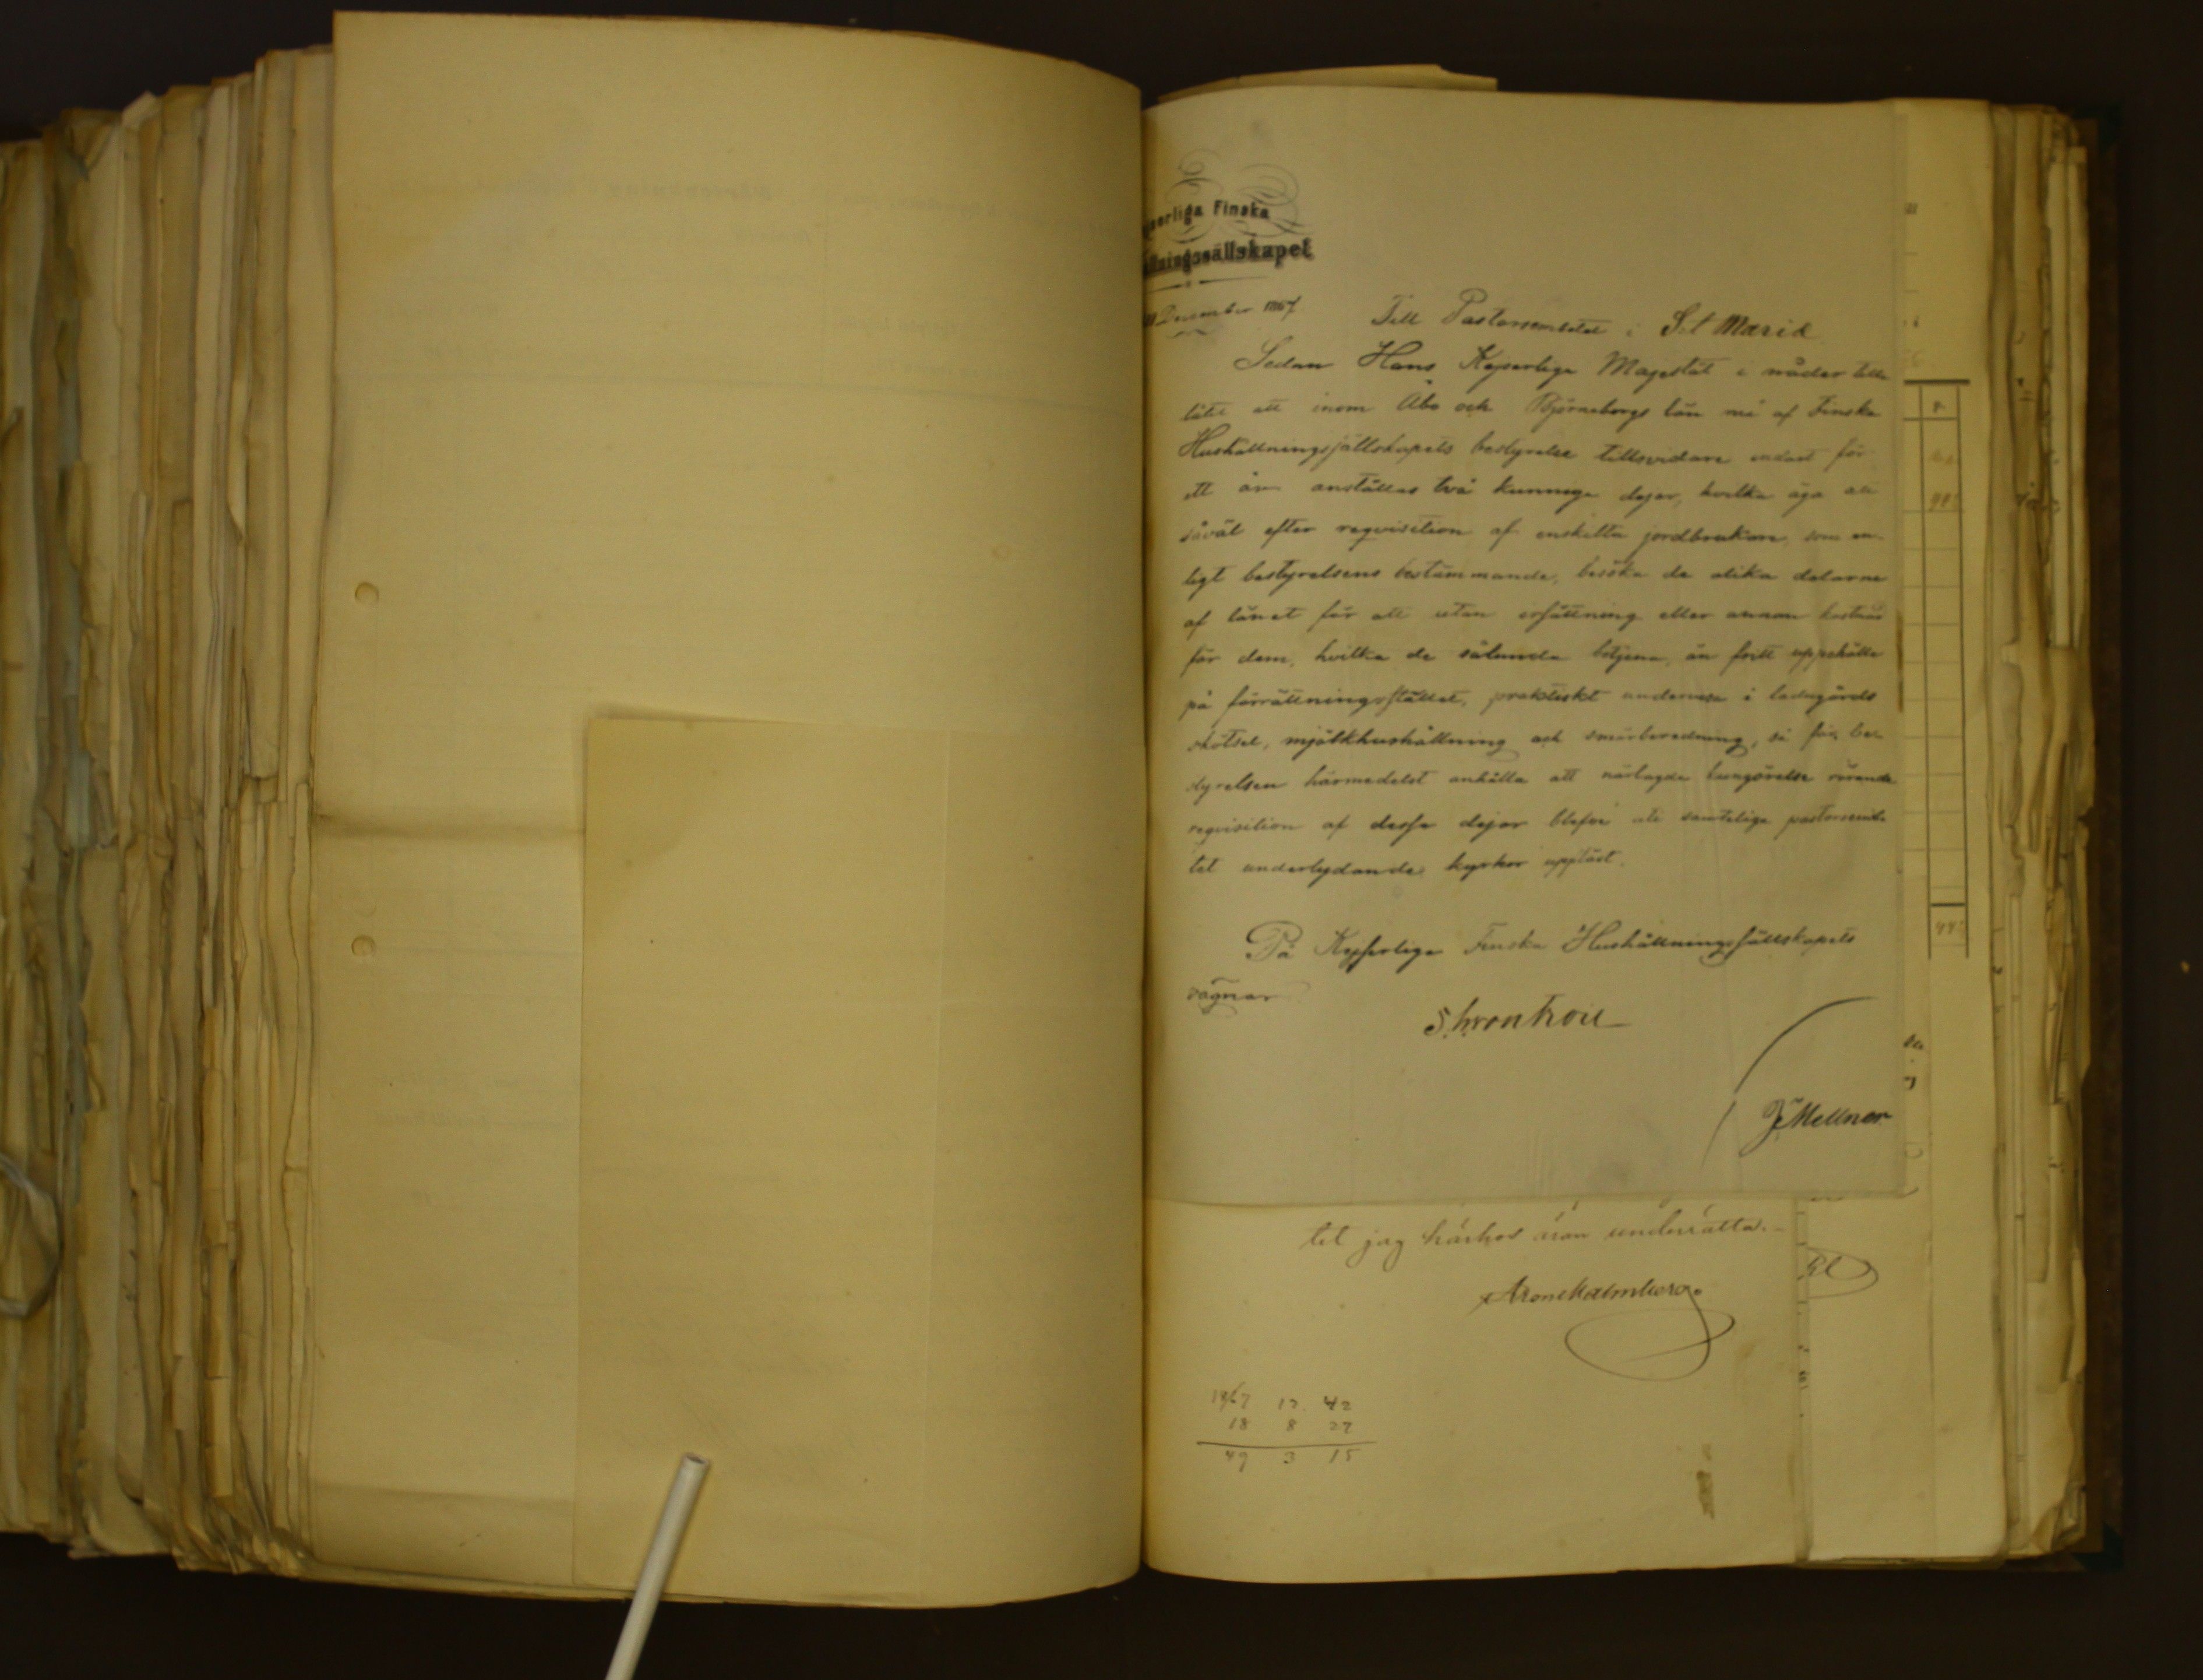 jserliga Finska
llningssällskapet
December 1867
Till Pastorsembetet i S:t Marie
Sedan Hans Kejserliga Majestät i nåder tillå
låtit att inom Åbo och Björneborgs län må af Finska
Hushållningssällskapets bestyrelse tillsvidare endast för
ett år anställas två kunniga dejor, hvilka äga att
såväl efter reqvisition af enskilta jordbrukare, som en-
ligt bestyrelsens bestämmande, besöka de olika delarne
af länet för att utan ersättning eller annan kostnad
för dem, hvilka de sålunda betjena, än fritt uppehälle
på förrättningsstället, praktiskt undervisa i ladugårds
skötsel, mjölkhushållning och smörberedning, så får be-
styrelsen härmedelst anhålla att närlagde kungörelse rörande
reqvisition af dessa dejor blefve uti samtelige pastorsembe
tet underlydande kyrkor uppläst.
På Kejserliga Finska Hushållningssällskapets
vägnar
S. h. von Troil
Mellner
tet jag härhos äran underrätta.
Aron Malmberg
1867 12 42
18 8 27
49 3 15